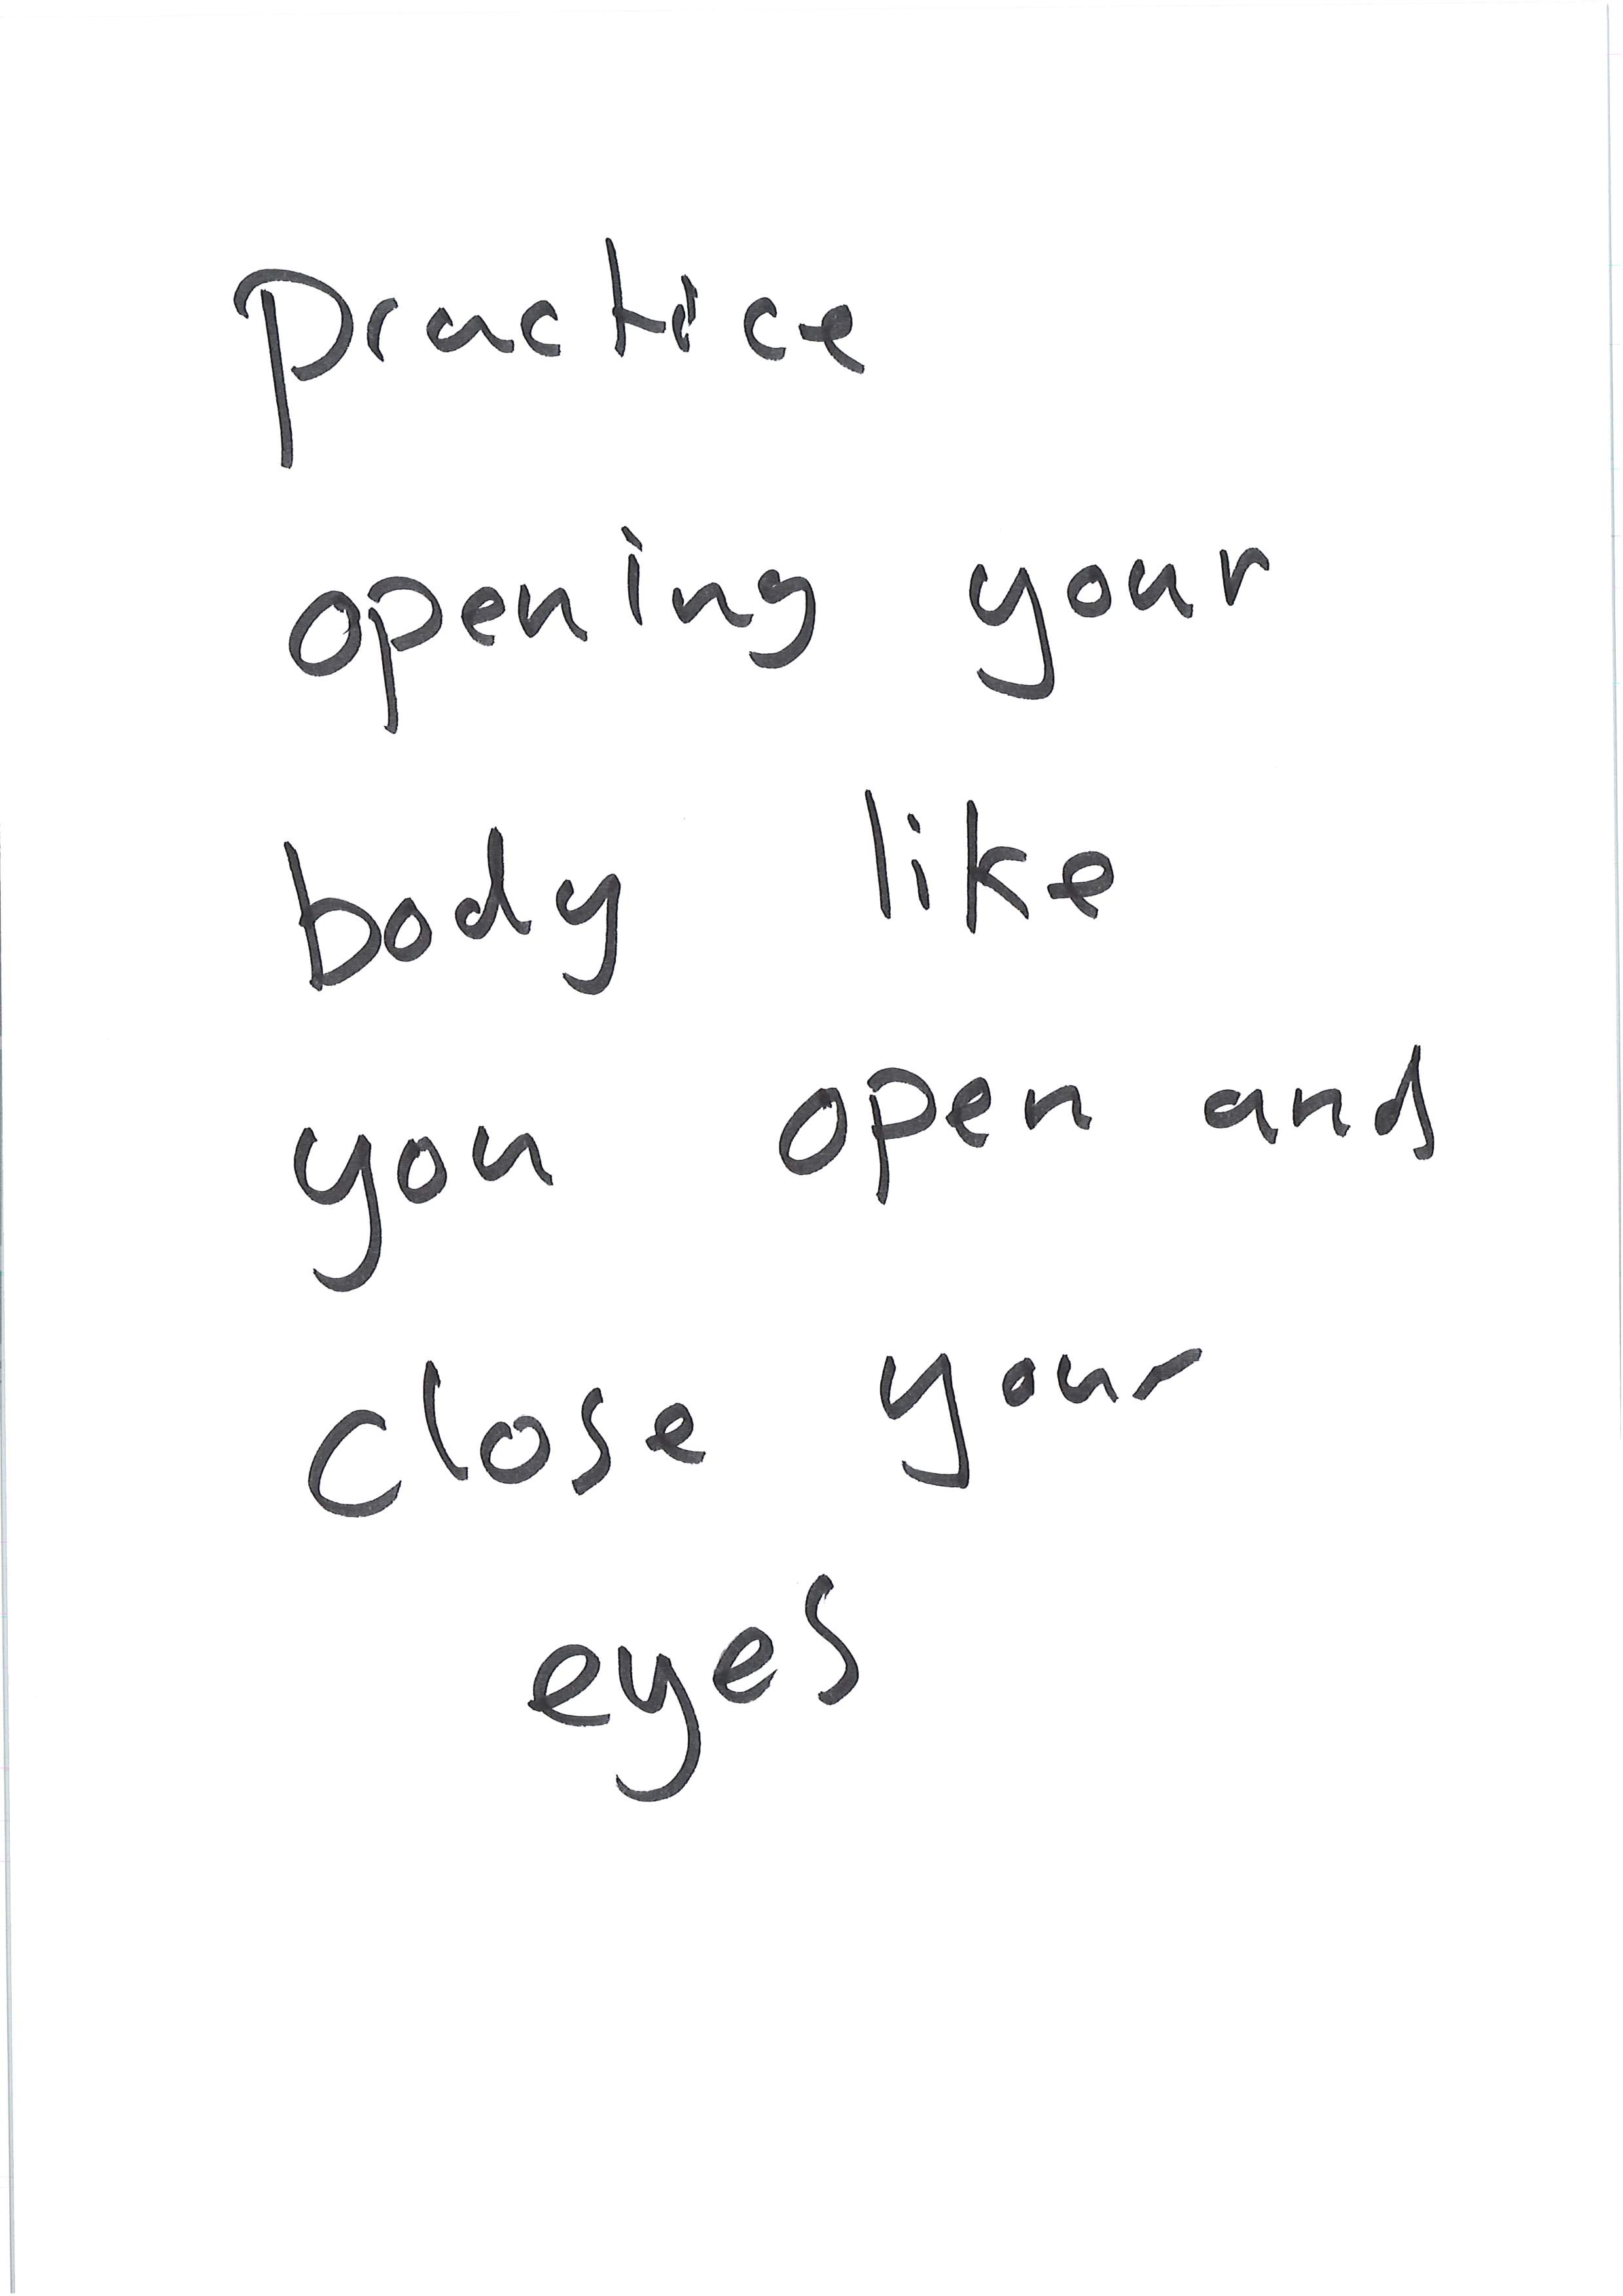 Practice
opening your
body like
you open and
close your
eyes